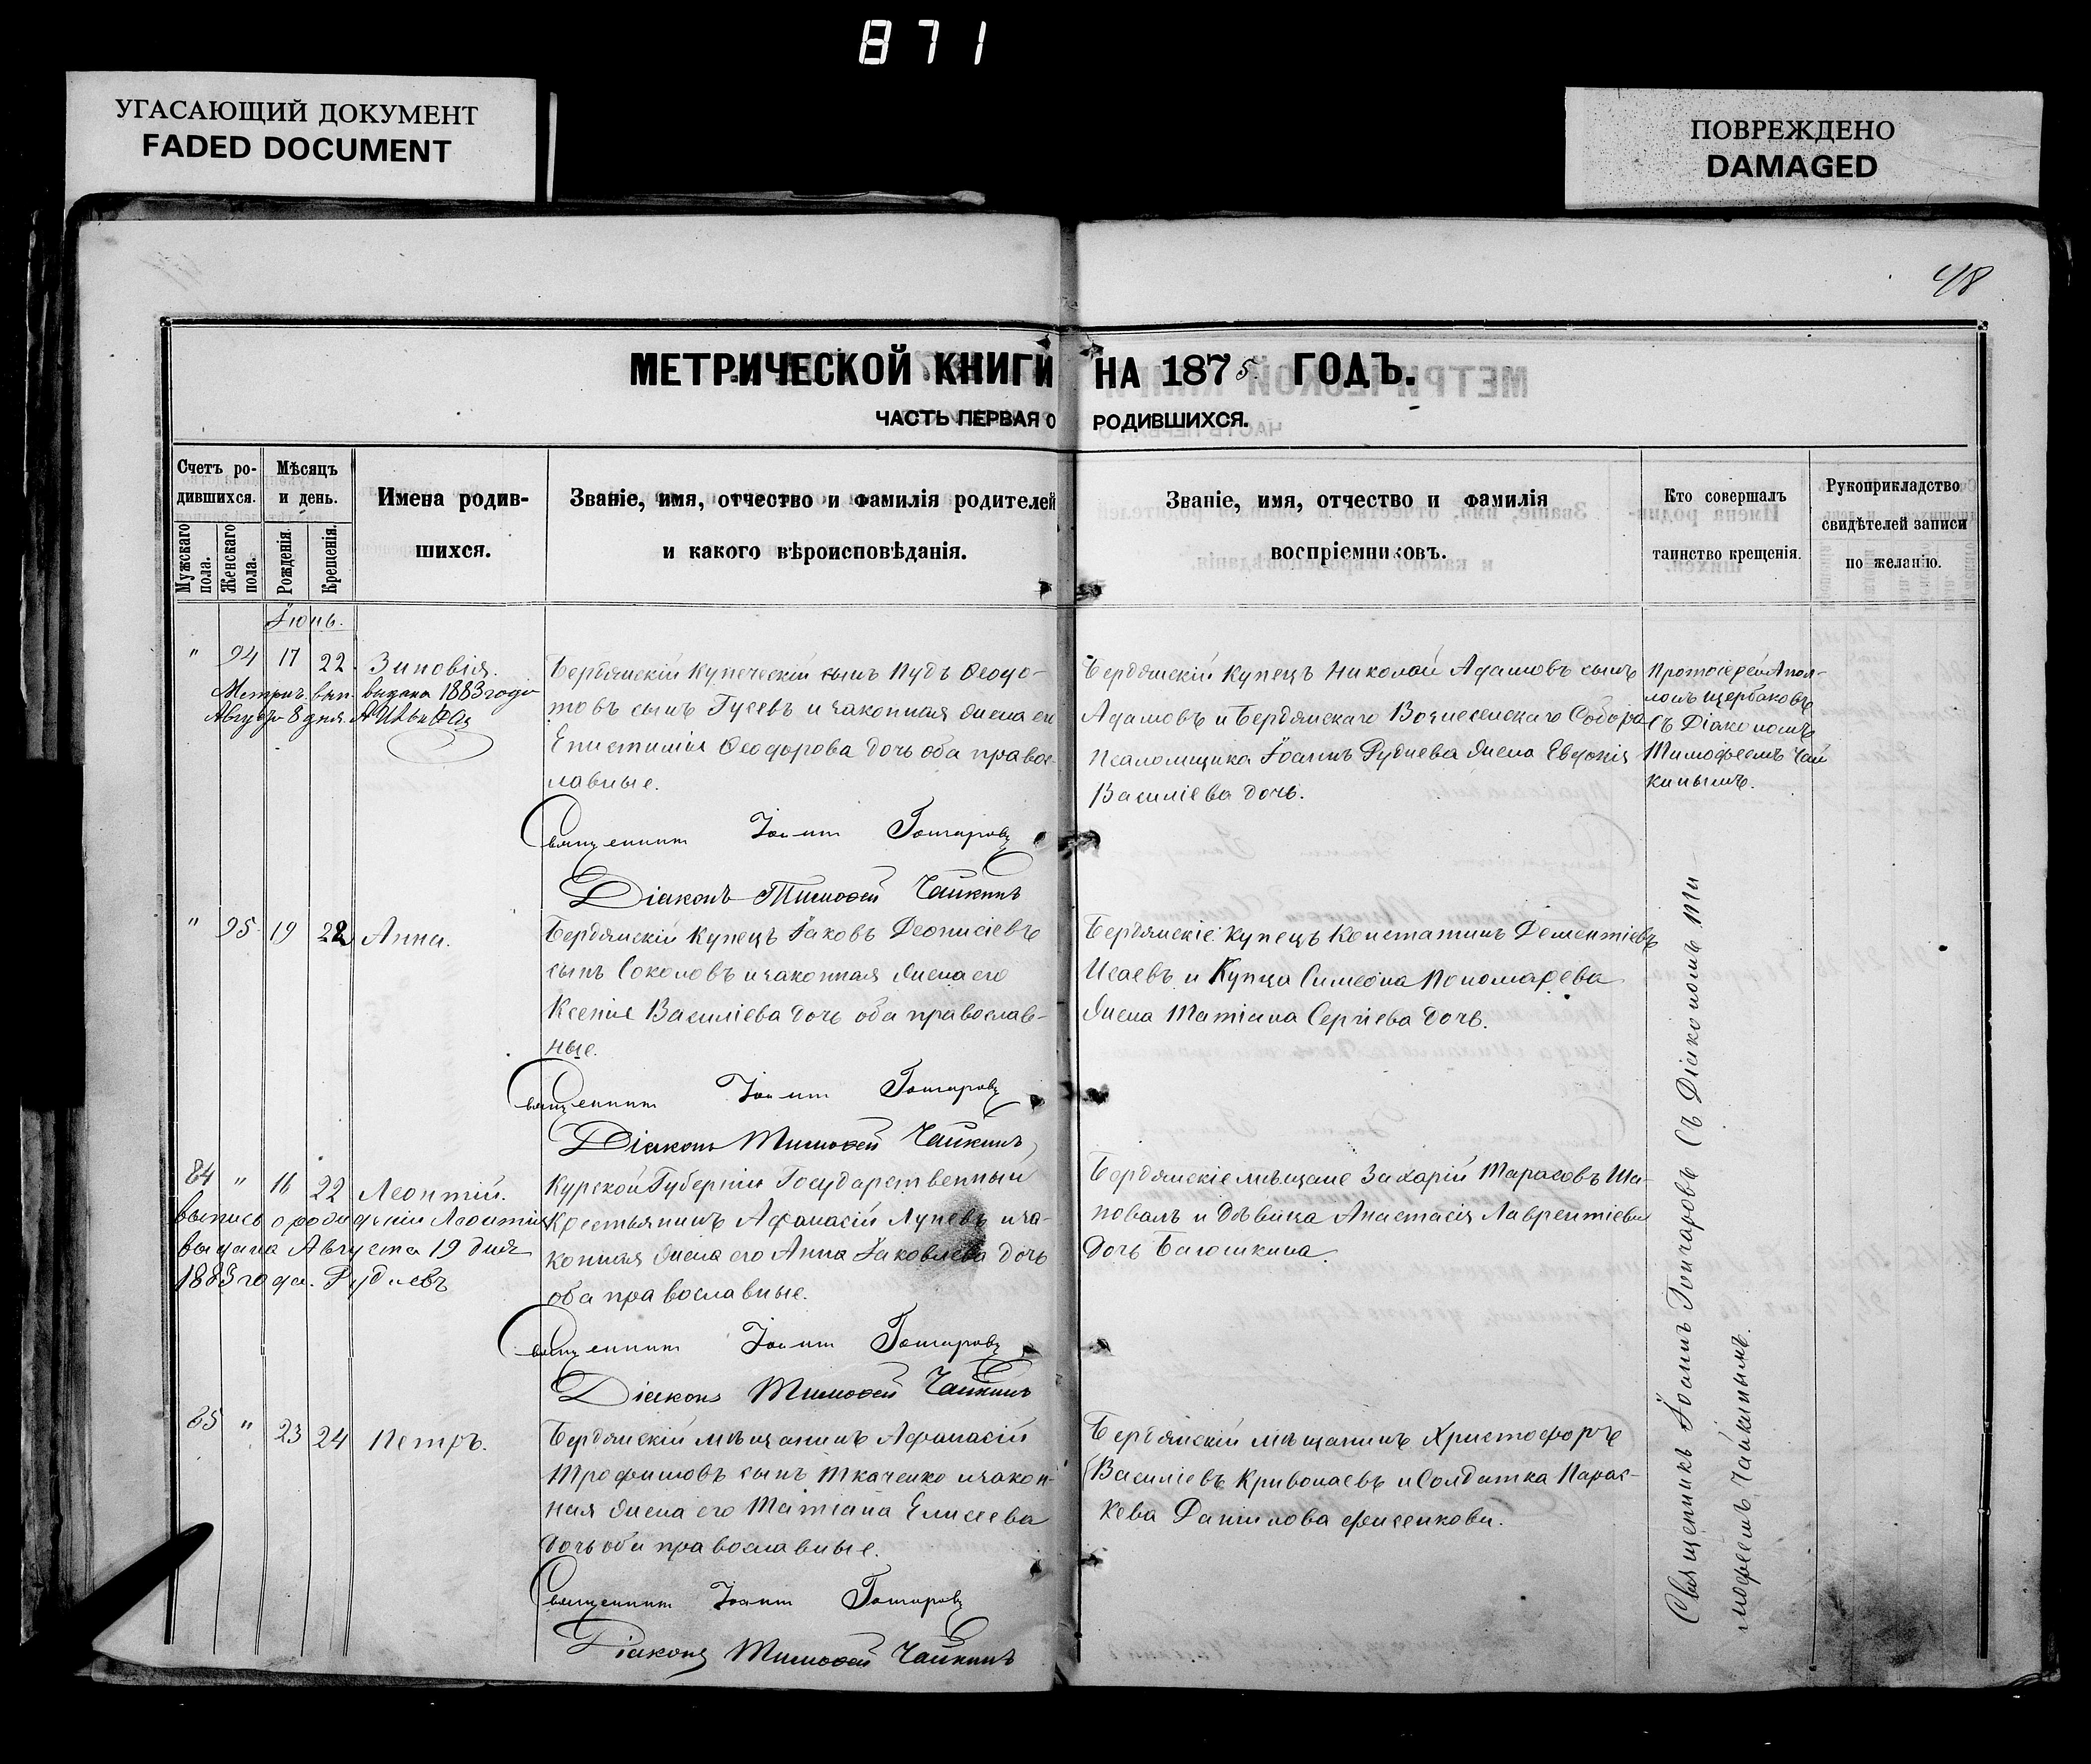 871
УГАСАЮЩИЙ ДОКУМЕНТ
FADED DOCUMENT
ПОВРЕЖДЕНО
DAMAGED
48
МЕТРИЧЕСКОЙ КНИГИ НА 1875 ГОДЪ.
ЧАСТЬ ПЕРВАЯ О РОДИВШИХСЯ.
Счетъ ро-
дившихся.
Мужскаго пола.
Женскаго пола.
Мѣсяцъ
и день.
Рожденія.
Крещенія.
Имена родив-
шихся.
Званіе, имя, отчество и фамилія родителей
и какого вѣроисповѣданія.
Званіе, имя, отчество и фамилія
воспріемниковъ.
Кто совершалъ
таинство крещенія.
Рукоприкладство
свидѣтелей записи
по желанію.
Іюнь.
" 94 17 22 Зиновія.
Метрич. вып. выдана 1883 года
Августа 8 дня.
Бердянскій Купеческій сынъ Пудъ Ѳеодо-
товъ сынъ Гусевъ и законная жена его
Епистимія Ѳеодорова дочь оба правос-
лавные.
Священникъ Іоаннъ Гончаровъ
Діаконъ Тимофей Чайкинъ
Бердянскій Купецъ Николай Адамовъ сынъ
Адамовъ и Бердянскаго Вознесенскаго Собора
Псаломщика Іоанна Руднева жена Евдокія
Василіева дочь.
Протоіерей Апол-
лонъ Щербаковъ
Съ Діакономъ
Тимофеемъ Чай
кинымъ.
" 95 19 22 Анна.
Бердянскій Купецъ Іаковъ Деонисіевъ
сынъ Соколовъ и законная жена его
Ксенія Василіева дочь оба православ-
ные.
Священникъ Іоаннъ Гончаровъ
Діаконъ Тимофей Чайкинъ
Бердянскіе: купецъ Констатинъ Дементіевъ
Исаевъ и Купца Симеона Пономарева
жена Татіана Сергіева дочь.
84 " 16 22 Леонтій.
выпись о рожденіи Леонтія
выдана Августа 19 дня
1883 года. Рудневъ
Курской Губерніи Государственный
Крестьянинъ Афанасій Луневъ и за-
конная жена его Анна Іаковлева дочь
оба православные.
Священникъ Іоаннъ Гончаровъ
Діаконъ Тимофей Чайкинъ
Бердянскіе мѣщане Захарій Тарасовъ Ша-
повалъ и дѣвица Анастасія Лаврентіева
дочь
85 " 23 24 Петръ.
Бердянскій мѣщанинъ Афанасій
Трофимовъ сынъ Ткаченко и закон-
ная жена его Татіана Елисеева
дочь оба православные.
Священникъ Іоаннъ Гончаровъ
Діаконъ Тимофей Чайкинъ
Бердянскій мѣщанинъ Христофоръ
Василіевъ Кривонаевъ и Солдатка Парас-
кева Данилова
Священникъ Іоаннъ Гончаровъ Съ Діакономъ Ти-
мофеемъ Чайкинымъ.